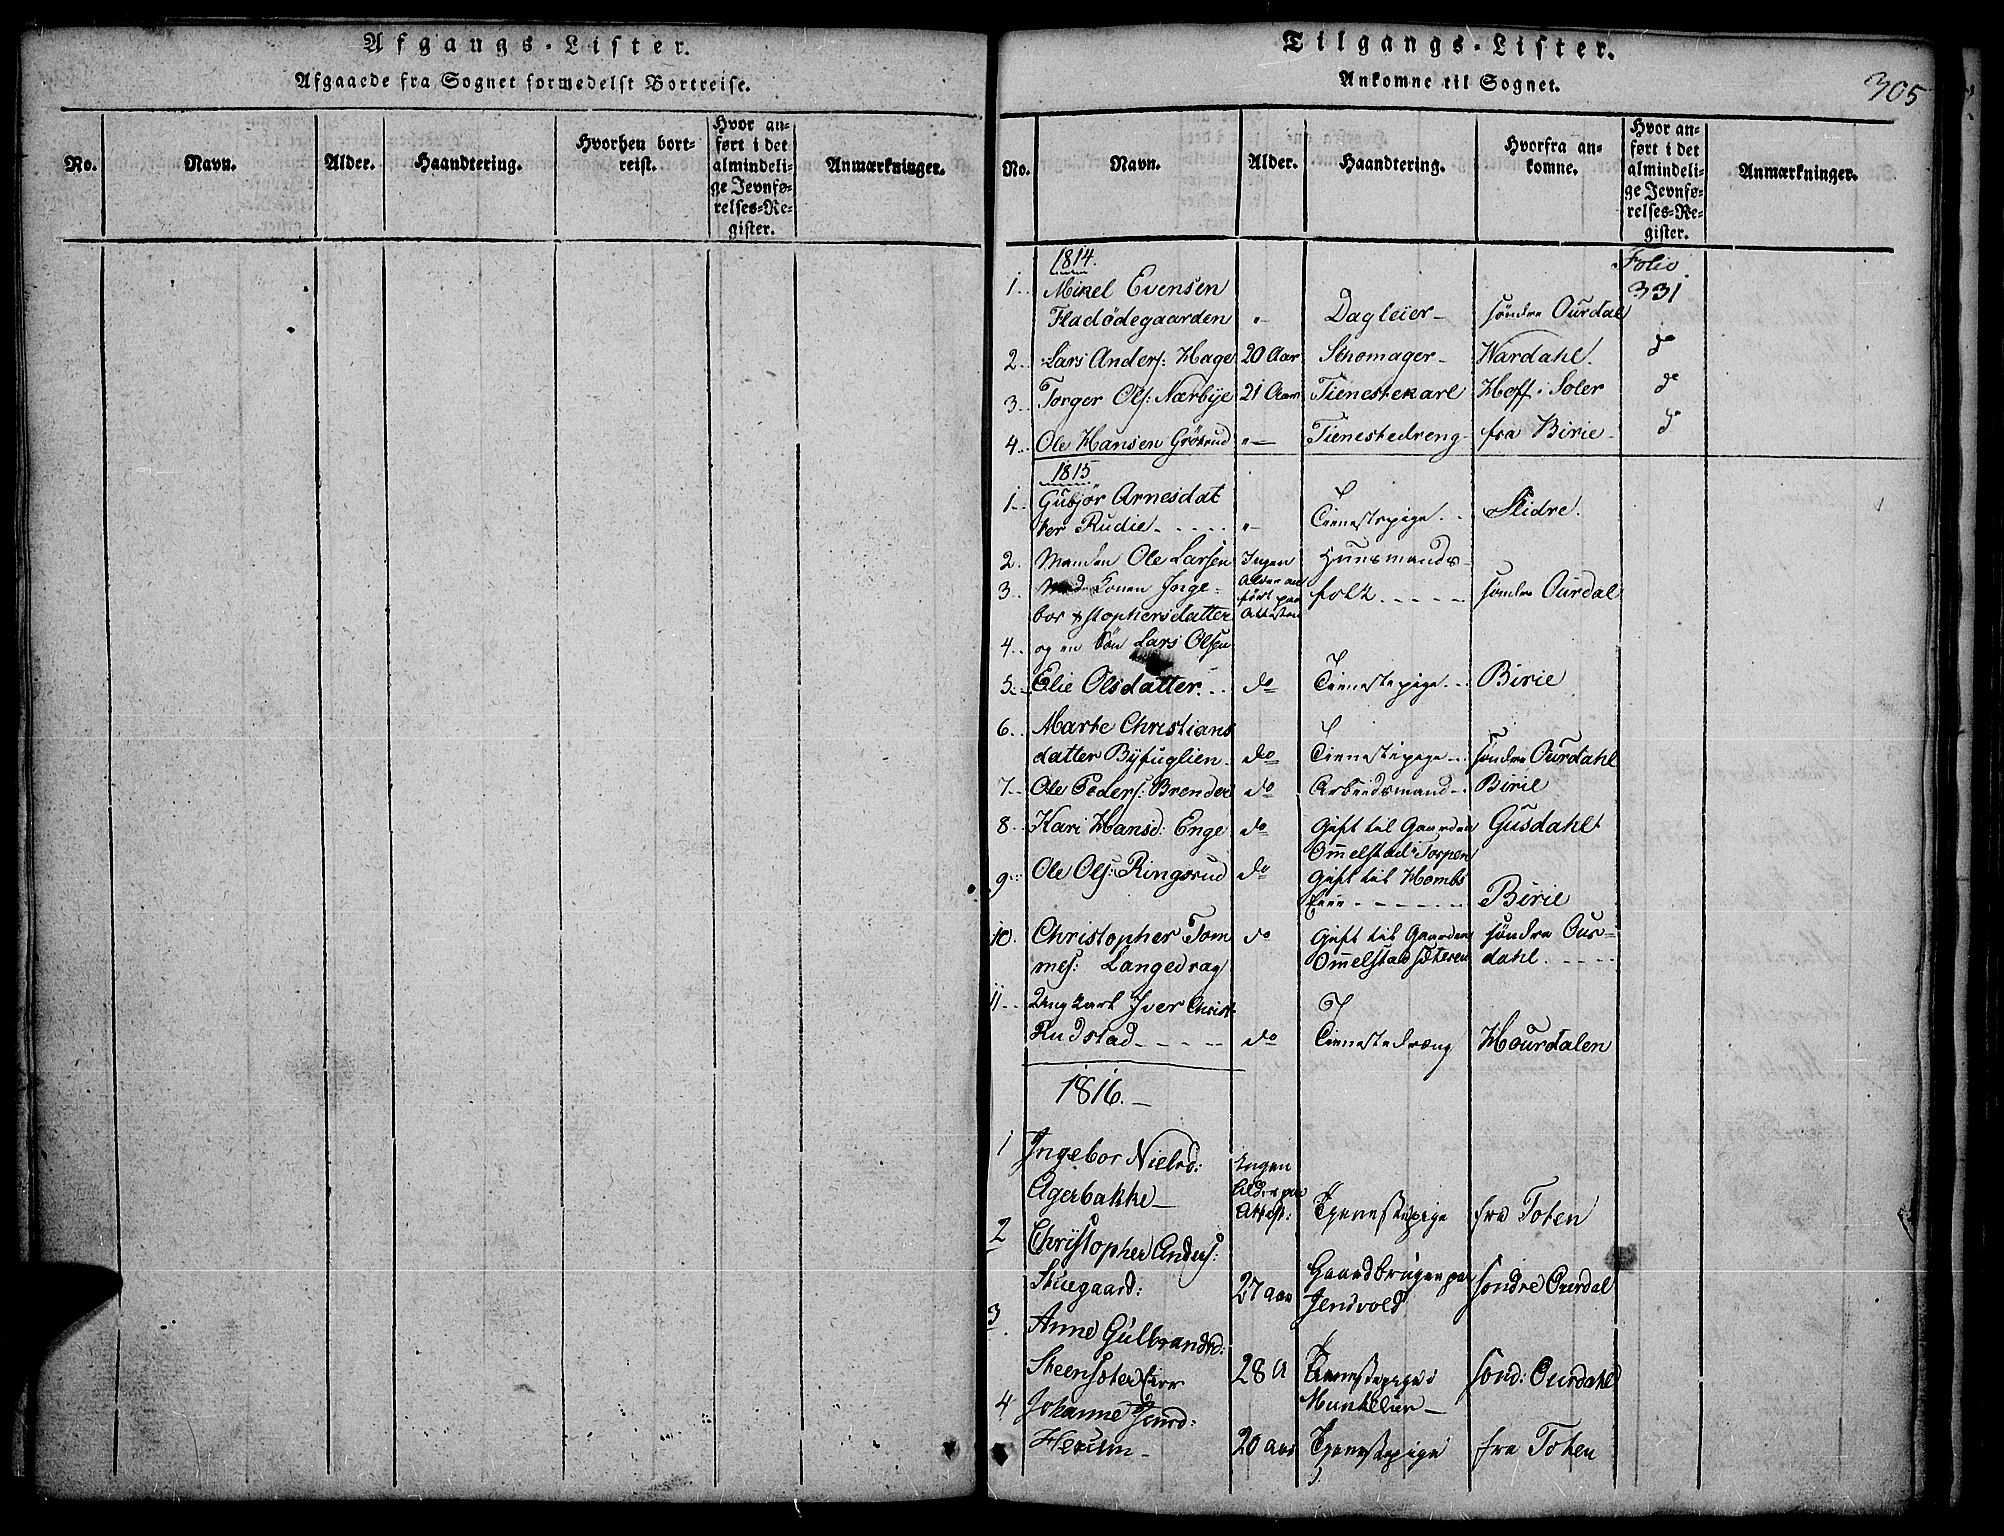 Afgangs-Lister.
Afgaaede fra Sognet formedelst Bortreise.
No.
Navn.
Alder.
Haandtering.
Hvorhen bort-
reist.
Hvor an-
ført i det
almindeli-
ge Jevnfø-
relses-Re-
gister.
Anmærkninger.
Tilgangs-Lister.
Ankomne til Sognet.
305
No.
Navn.
Alder.
Haandtering.
Hvorfra an-
komne.
Hvor an-
ført i det
almindeli-
ge Jevnfø-
relses-Re-
gister.
Anmærkninger.
1814.
Folio.
1 Mikel Evensen 331
Fladødegaarden " Dagleier søndre Ourdal
2 Lars Anders: Hage 20 Aar Schomager Wardahl. do
3 Torger Ols: Nærbye 21 Aar Tienestekarl Hoff i Soler do
4 Ole Hansen Grøtrud " Tienestedreng fra Birie do
1815
1 Gubjør Arnesdat
ter Rudie " Tienestepige Slidre.
2. Manden Ole Larsen Ingen Huusmands-
3. Med Konen Inge- Alder an folk søndre Ourdal
bor Xstophersdatter ført paa Attesten
4 og en Søn Lars Olsen
5 Elie Olsdatter do Tienestepige Birie
6 Marte Christians
datter Byfuglien do Tienestepige søndre Ourdahl
7 Ole Peders: Brender do Arbeidsmand Birie
8 Kari Hansd: Enge do Gift til Gaarden Gusdahl
Ommelstad i Torpen
9 Ole Ols: Ringsrud do Gift til Hombs
Eiee Birie
10. Christopher Tom do Gift til Gaarden søndre Our-
mes: Langedrag Ommelstadsæteren dahl.
11 Ung karl Iver Christ:
Rudstad do Tienestedræng Hourdalen
1816.
1 Ingebor Nielsd: Ingen
Agerbakke Alder paa Attest: Tjenestepige fra Toten
2 Christopher Anders: Gaardbrugen paa
Stuegaard: 27 aar Jendvold søndre Ourdal
3 Anne Gulbrandsd:
Steensæter Eie 28 A Tienestepige i sønd: Ourdahl
4 Johanne Iversd: Munkelier
Herum 20 aar Tjenestepige fra Toten